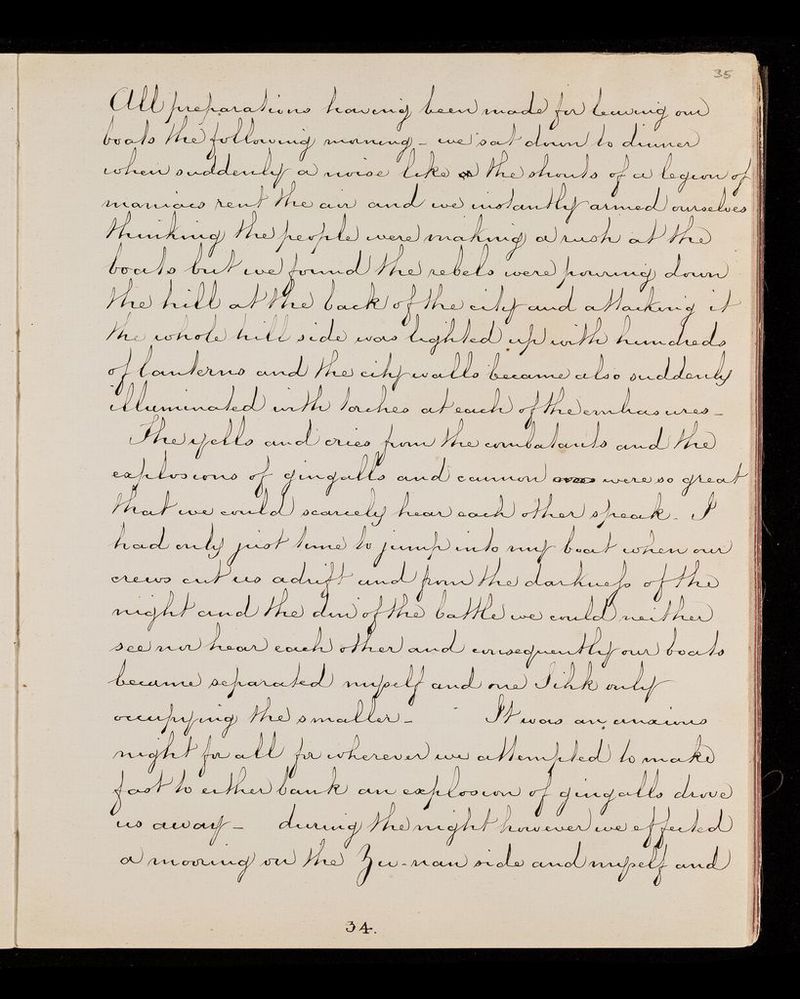 35
All preparations having been made for leaving our
boats the following morning - we sat down to dinner
when suddenly a noise like the shouts of a legion of
maniacs rent the air and we instantly armed ourselves
thinking the people were making a rush at the
boats but we found the rebels were pouring down
the hill at the back of the city and attacking it
the whole hill side was lighted up with hundreds
of lanterns and the city walls became also suddenly
illuminated with torches at each of the embrasures -
The yells and cries from the combatants and the
explosions of gingalls and cannon were so great
that we could scarcely hear each other speak. I
had only just time to jump into my boat when our
crews cut us adrift and from the darkness of the
night and the din of the battle we could neither
see nor hear each other and consequently our boats
became separated myself and one Sihk only
occupying the smaller - It was an anxious
night for all for wherever we attempted to make
fast to either bank an explosion of gingalls drove
us away - during the night however we effected
a mooring on the Yu-nan side and myself and
34.